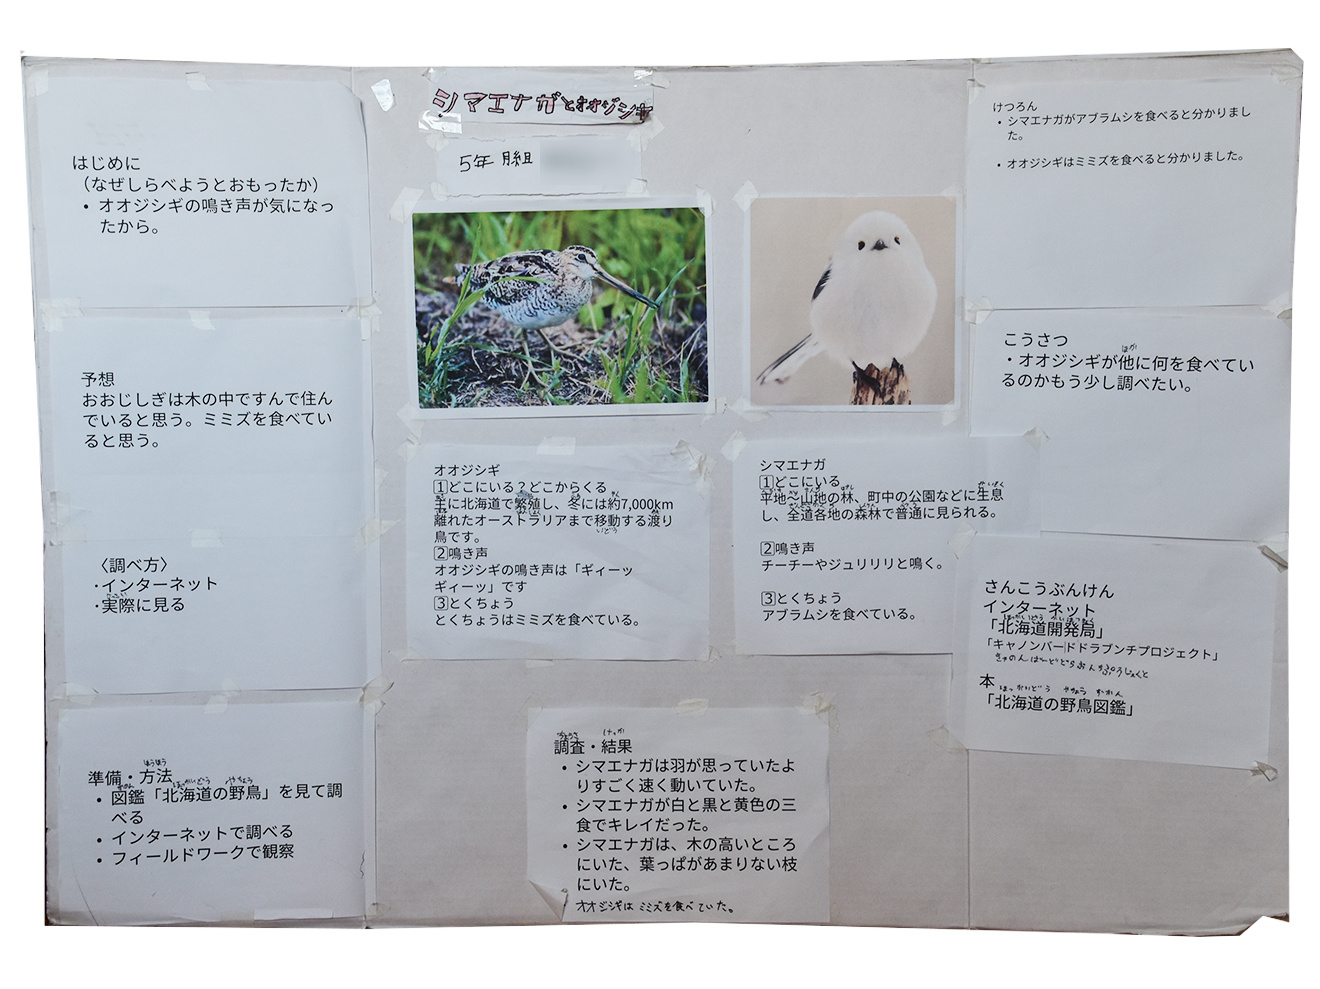 シマエナガとオオジシギ
5年 月組
はじめに
（なぜしらべようとおもったか）
・オオジシギの鳴き声が気になっ
たから。
予想
おおじしぎは木の中ですんで住ん
でいると思う。ミミズを食べてい
ると思う。
〈調べ方〉
・インターネット
じっさい
・実際に見る
ほうほう
準備・方法
ずかん ほっかいどう やちょう
・図鑑「北海道の野鳥」を見て調
べる
・インターネットで調べる
・フィールドワークで観察
オオジシギ
1どこにいる？どこからくる
主に北海道で繁殖し、冬には約7,000km
離れたオーストラリアまで移動する渡り
いどう
鳥です。
2鳴き声
オオジシギの鳴き声は「ギィーッ
ギィーッ」です
3とくちょう
とくちょうはミミズを食べている。
シマエナガ
1どこにいる
平地～山地の林、町中の公園などに生息
し、全道各地の森林で普通に見られる。
2鳴き声
チーチーやジュリリリと鳴く。
3とくちょう
アブラムシを食べている。
ちょうさ けっか
調査・結果
・シマエナガは羽が思っていたよ
りすごく速く動いていた。
・シマエナガが白と黒と黄色の三
食でキレイだった。
・シマエナガは、木の高いところ
にいた、葉っぱがあまりない枝
にいた。
オオジシギはミミズを食べていた。
けつろん
・シマエナガがアブラムシを食べると分かりまし
た。
・オオジシギはミミズを食べると分かりました。
こうさつ
ほか
・オオジシギが他に何を食べてい
るのかもう少し調べたい。
さんこうぶんけん
インターネット
ほっかいどうかいはつきょく
「北海道開発局」
「キャノンバードドラブンチプロジェクト」
きゃのんばーどどらぶんちぷろじぇくと
本
ほっかいどう やちょう ずかん
「北海道の野鳥図鑑」